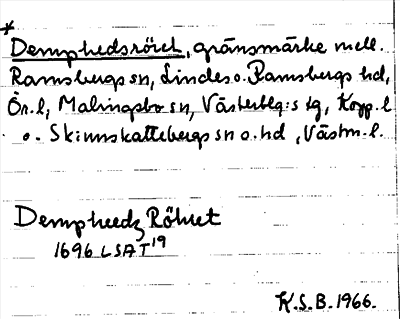 * Demphedsröret, gränsmärke mell.
Ramsbergs sn, Lindes o. Ramsbergs hd,
Ör. l, Malingsbo sn, Västerblg:s tg, Kopp. l
o. Skinnskattebergs sn o. hd, Västm. l.
Dempheedz Röhret
1696 LSA T 19
K.S.B. 1966.